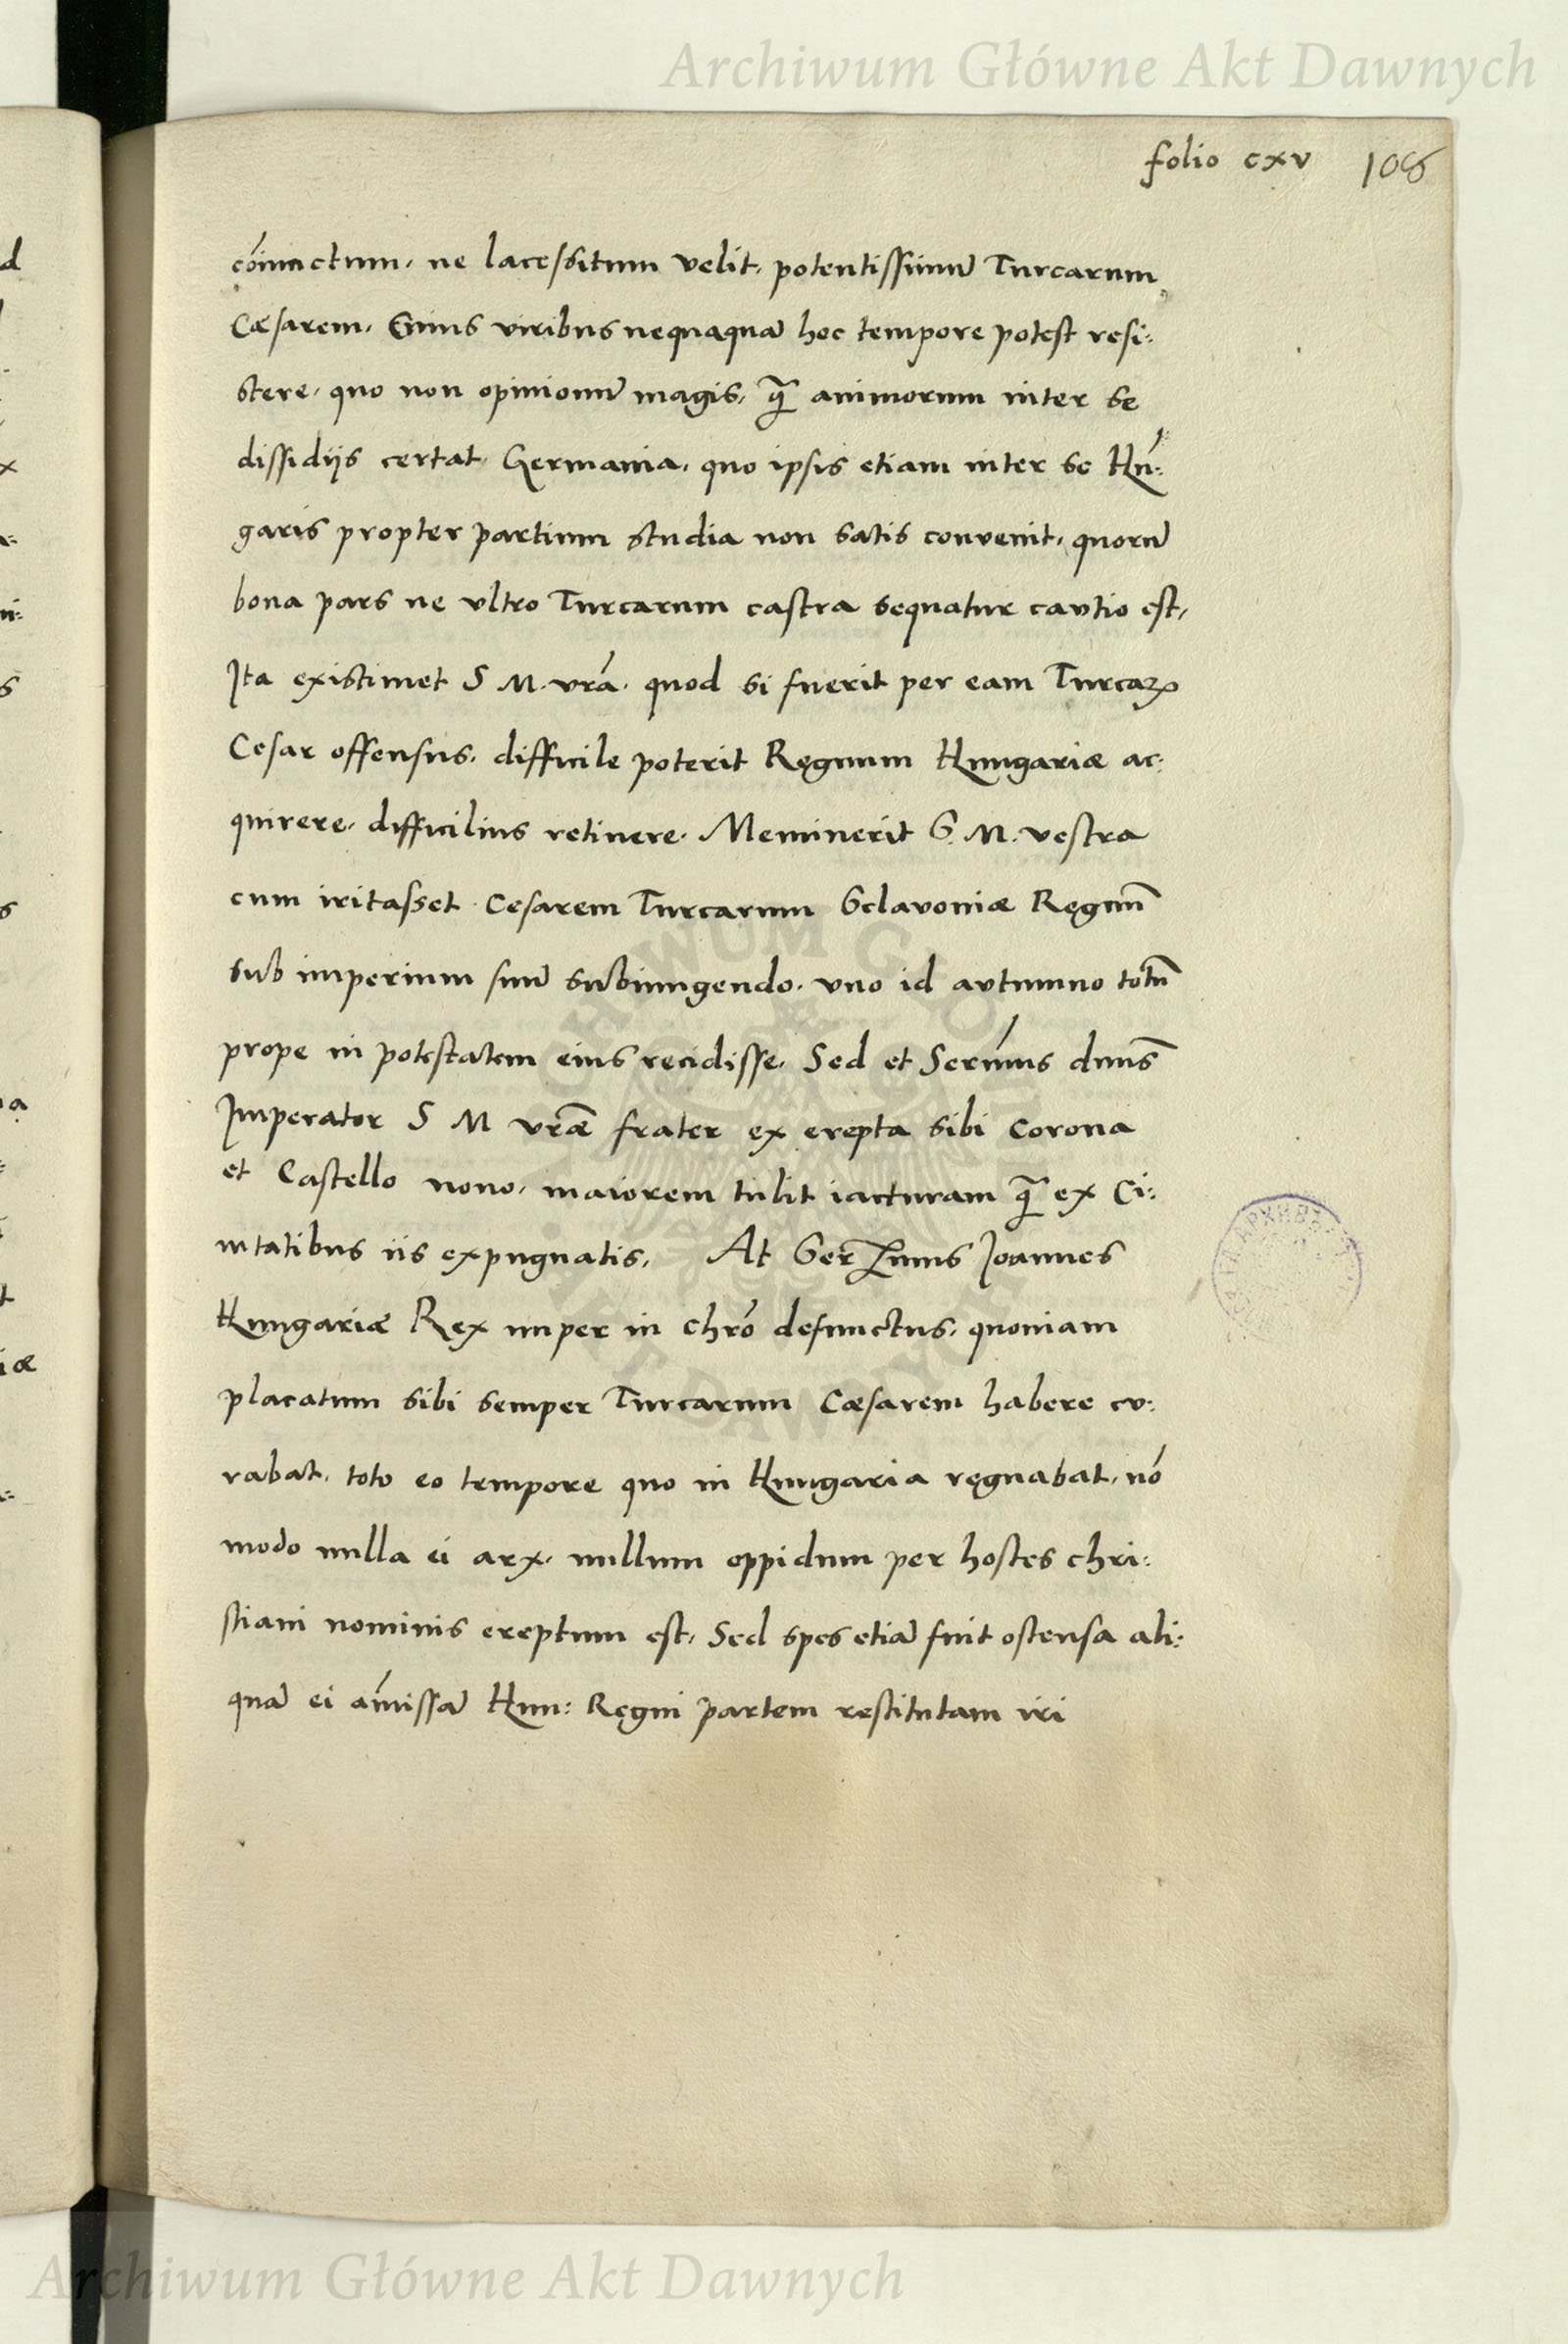 Archiwum Główne Akt Dawnych
folio cxv 108
cóiunctum, ne lacessitum velit, potentissimū Turcarum
Cæsarem, Cuius viribus nequaquā hoc tempore potest resi:
stere, quo non opinionū magis, q̄ animorum inter se
dissidijs certat Germania, quo ipsis etiam inter se Hń:
garis propter partium studia non satis convenit, quorū
bona pars ne vltro Turcarum castra sequatur cautio est,
Ita existimet S M. vrā. quod si fuerit per eam Turcaꝝ
Cesar offensus, difficile poterit Ręgnum Hungariæ ac:
quirere, difficilius retinere. Meminerit S. M. vestra
cum iritasset Cesarem Turcarum Sclavoniæ Ręgnū
sub imperium suū subiungendo, vno id avtumno totū
prope in potestatem eius recidisse, Sed et Serm̄us dnūs
Imperator S M vrǣ frater ex erepta sibi Corona
et Castello nono, maiorem tulit iacturam q̄ ex Ci:
uitatibus iis expugnatis, At Ser̄mus Joannes
Hungariæ Rex nuper in chrō defunctus, quoniam
placatum sibi semper Turcarum Cæsarem habere cu:
rabat, toto eo tempore quo in Hungaria ręgnabat, nō
modo nulla ei arx, nullum oppidum per hostes chri:
stiani nominis ereptum est, Sed spes etiā fuit ostensa ali:
quā ei āmissā Hun: Ręgni partem restitutam iri
Archiwum Główne Akt Dawnych